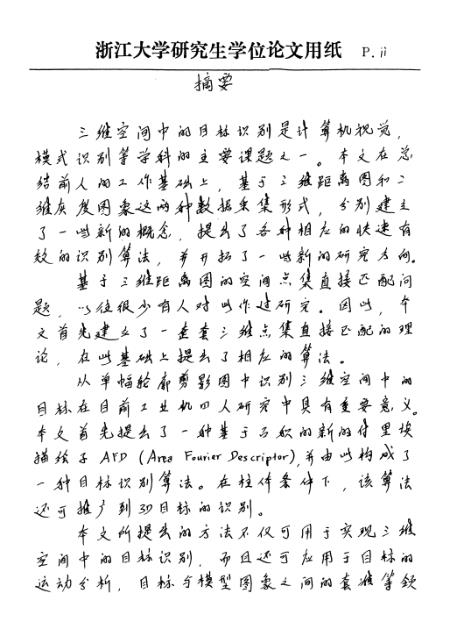 浙江大学研究生学位论文用纸 P. ii
摘要
三维空间中的目标识别是计算机视觉,
模式识别等学科的主要课题之一。本文在总
结前人的工作基础上,基于三维距离图和二
维灰度图象这两种数据采集形式,分别建立
了一些新的概念,提出了各种相应的快速有
效的识别算法,并开拓了一些新的研究方向。
基于三维距离图的空间点集直接匹配问
题,以往很少有人对此作过研究。因此,本
文首先建立了一套三维点集直接匹配的理
论,在此基础上提出了相应的算法。
从单幅轮廓剪影图中识别三维空间中的
目标在目前工业机器人研究中具有重要意义。
本文首先提出了一种基于面积的新的付里埃
描绘子 AFD (Area Fourier Descriptor),并由此构成了
一种目标识别算法。在柱体条件下,该算法
还可推广到3D目标的识别。
本文所提出的方法不仅可用于实现三维
空间中的目标识别,而且还可应用于目标的
运动分析,目标与模型图象之间的套准等领